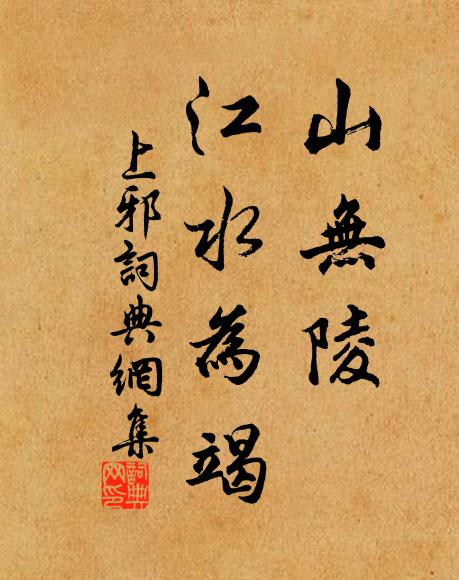 山無陵
江水為竭
上邪詞典網集
詞典
网印